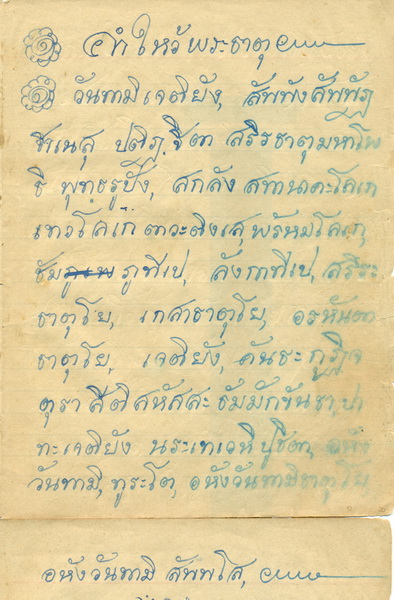 คำไหว้พระธาตุ
วันทามิเจติยัง, สัพพังสัพพัฏ
ฐาเนสุ ปติฏฐิตา สรีรธาตุมหาโพ
ธิ พุทฺธรูปัง, สกลัง สทา นาคะโลเก
เทวโลเก ดาวะติงเส พรัหมโลเก,
ชัมภูทีเป, ลังกาทีเป, สรีระ
ธาตุโย, เกสาธาตุโย, อรหันตา
ธาตุโย, เจติยัง, คันธะกุฏิจ
ตุรา สีติสหัสสะ ธัมมักขันธา, ปา
ทะเจติยัง นระเทเวหิปูชิตา, อหัง
วันทามิ, ทูระโต, อหังวันทามิธาตุโย,
อหังวันทามิ สัพพโส,